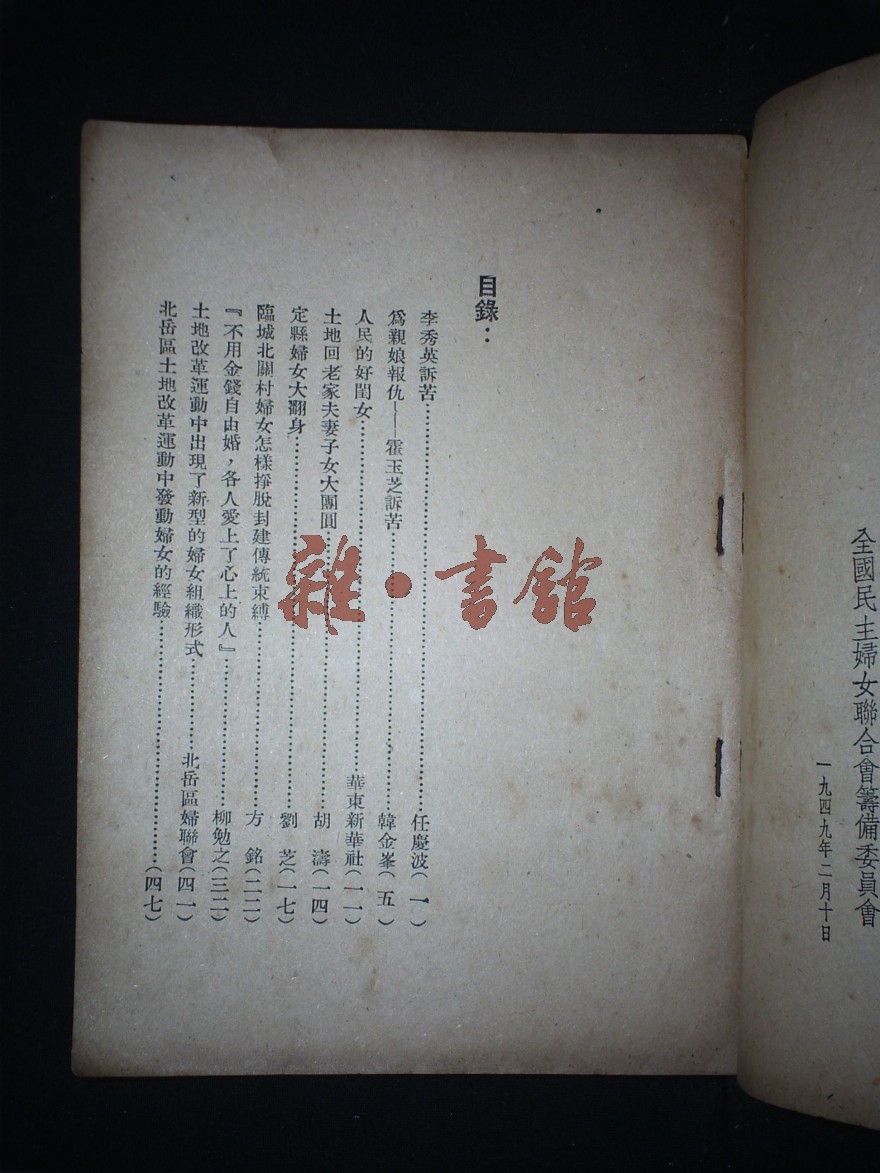 全國民主婦女聯合會籌備委員會
一九四九年二月十日
目錄：
李秀英訴苦……任慶波（一）
爲親娘報仇——霍玉芝訴苦……韓金峯（五）
人民的好閨女……華東新華社（一一）
土地回老家夫妻子女大團圓……胡　濤（一四）
定縣婦女大翻身……劉　芝（一七）
臨城北關村婦女怎樣掙脫封建傳統束縛……方　銘（二二）
『不用金錢自由婚，各人愛上了心上的人』……柳勉之（三二）
土地改革運動中出現了新型的婦女組織形式……北岳區婦聯會（四一）
北岳區土地改革運動中發動婦女的經驗……（四七）
雜·書館